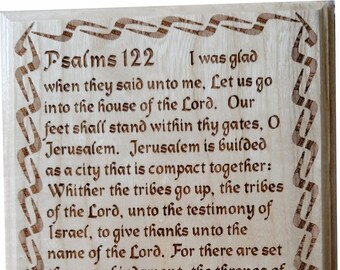 Psalms 122 I was glad
when they said unto me, Let us go
into the house of the Lord. Our
feet shall stand within thy gates, O
Jerusalem. Jerusalem is builded
as a city that is compact together:
Whither the tribes go up, the tribes
of the Lord, unto the testimony of
Israel, to give thanks unto the
name of the Lord. For there are set
thrones of